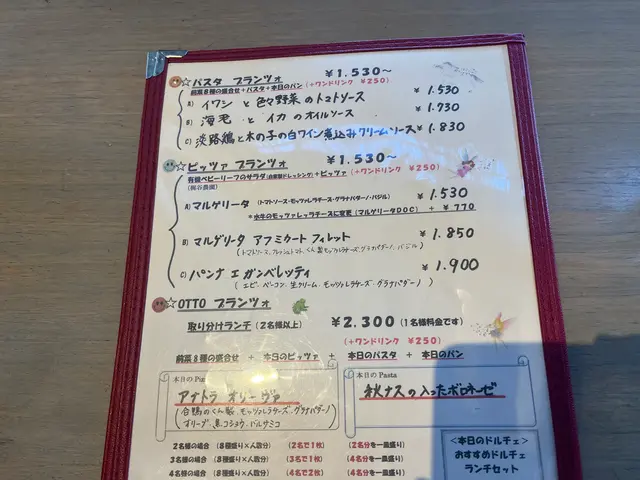 ☆パスタ プランツォ ￥1.530～
前菜８種の盛合せ+パスタ+本日のパン (+ワンドリンク ￥250)
A) イワシ と 色々野菜 のトマトソース ￥1.530
B) 海老 と イカ のオイルソース ￥1.730
C) 淡路鶏と木の子の白ワイン煮込みクリームソース ￥1.830
☆ピッツァ プランツォ ￥1.530～
有機ベビーリーフのサラダ(自家製ドレッシング)+ピッツァ (+ワンドリンク ￥250)
A) マルゲリータ (トマトソース・モッツァレラチーズ・グラナパダーノ・バジル) ￥1.530
※水牛のモッツァレッラチーズに変更(マルゲリータDOC) + ￥770
B) マルゲリータ アフミカート フィレット ￥1.850
(トマトソース、フレッシュトマト、くん製モッツァレラチーズ・グラナパダーノ、バジル)
C) パンナ エ ガンベレッティ ￥1.900
(エビ・ベーコン・生クリーム・モッツァレラチーズ・グラナパダーノ)
☆OTTO プランツォ
取り分けランチ (2名様以上) ￥2.300 (1名様料金です)
(+ワンドリンク ￥250)
前菜８種の盛合せ + 本日のピッツァ + 本日のパスタ + 本日のパン
本日の
アナトラ オリーヴァ
(合鴨のくん製、モッツァレラチーズ・グラナパダーノ
オリーブ、黒コショウ・バルサミコ)
本日の Pasta
秋ナスの入ったボロネーゼ
2名様の場合 (8種盛り×人数分) (2名で1枚) (2名分を一皿盛り)
3名様の場合 (8種盛り×人数分) (3名で1枚) (4名分を一皿盛り)
4名様の場合 (8種盛り×人数分) (4名で2枚) (4名分を一皿盛り)
<本日のドルチェ>
おすすめドルチェ
ランチセット